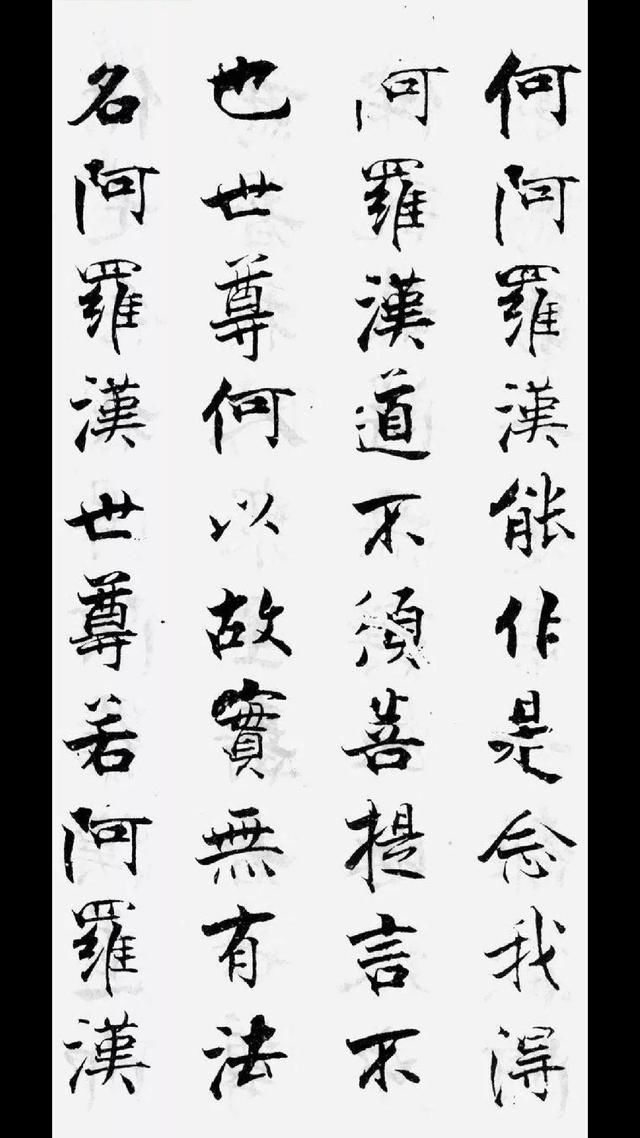 何阿羅漢能作是念我得
阿羅漢道不須菩提言不
也世尊何以故實無有法
名阿羅漢世尊若阿羅漢